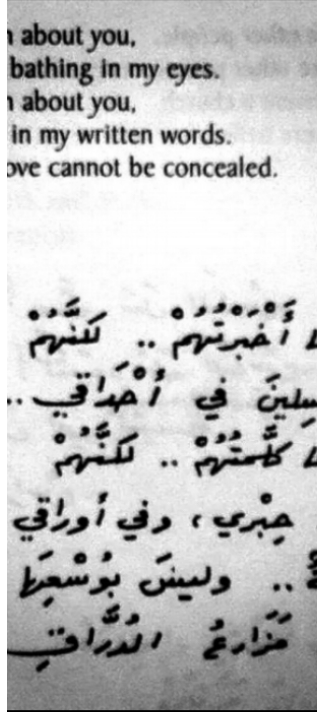 about you,
bathing in my eyes.
about you,
in my written words.
cannot be concealed.
أَخْبَرْتُهُمْ .. لَكِنَّهُمْ
في أَحْدَاقي ..
كَلَّمْتُهُمْ .. لَكِنَّهُمْ
حِبْري ، وفي أوراقي
.. وليسَ بوُسْعِهَا
مَزَارعُ الدُرَّاقِ